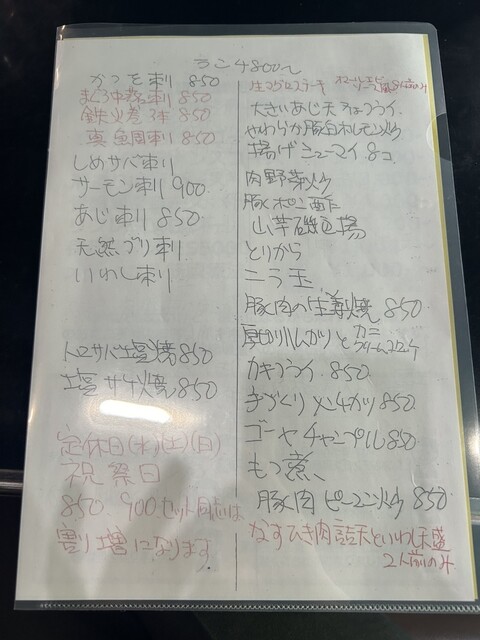 ランチ800〜
かつを刺 850
まぐろ中落刺 850
鉄火巻 3本 850
真鯛刺 850
しめサバ刺り
サーモン刺 900
あじ刺り 850
天然ブリ刺
いわし刺り
トロサバ塩焼 850
塩サケ焼 850
定休日(水)(土)(日)
祝祭日
850 900 セット同志は
割り増になります
生マグロステーキ
大きいあじ天 フライ
やわらか豚白札レモン炒
揚げシューマイ 8コ
肉野菜炒
豚ポン酢
山芋磯辺揚
とりから
ニラ玉
豚肉の生姜焼 850
厚切りハムカツと カニクリームコロッケ
カキフライ 850
手づくりメンチカツ 850
ゴーヤチャンプル 850
もつ煮
豚肉ピーマン炒 850
なすひき肉詰天といわし天盛
2人前のみ